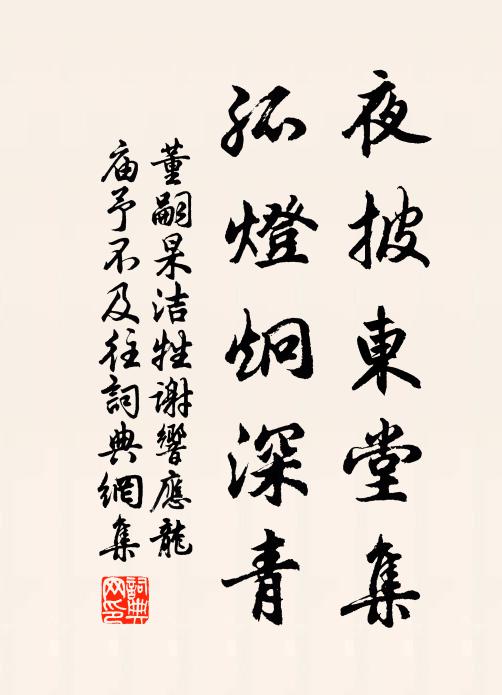 夜披東堂集
孤燈炯深青
董嗣杲洁牲谢響應龍
庙予不及往詞典網集
詞典網印